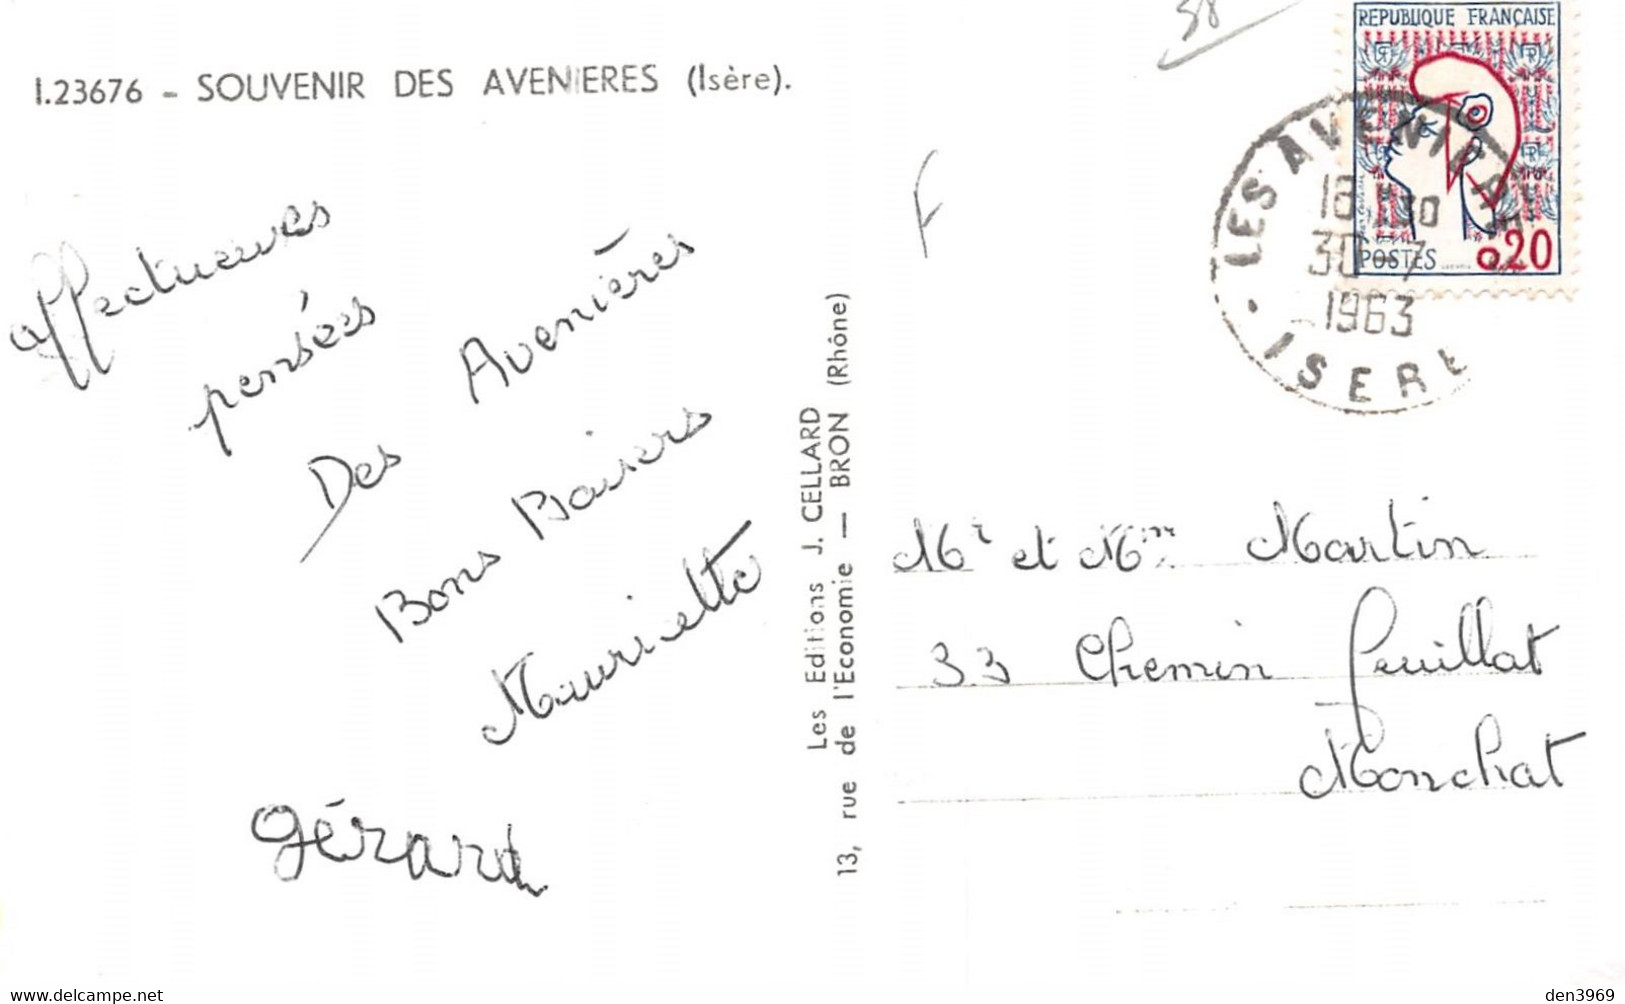 I.23676 - SOUVENIR DES AVENIERES (Isère).
affectueuses
pensées
Des Avenières
Bons Baisers
Mauricette
Gérard
Les Editions J. CELLARD
13, rue de l'Economie — BRON (Rhône)
58
F
REPUBLIQUE FRANÇAISE
POSTES 0.20
LES AVENIERES
18 H 30
30-7
1963
• ISERE
Mr et Mme Martin
33 Chemin Feuillat
Monchat
den3969